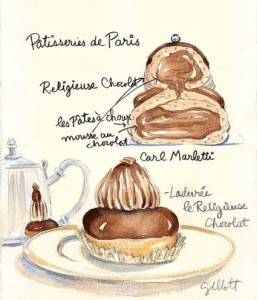 Patisseries de Paris
Religieuse Chocolat
les Pâtes à choux
mousse au
chocolat
Carl Marletti
- Ladurée
le Religieuse
Chocolat
Gillott